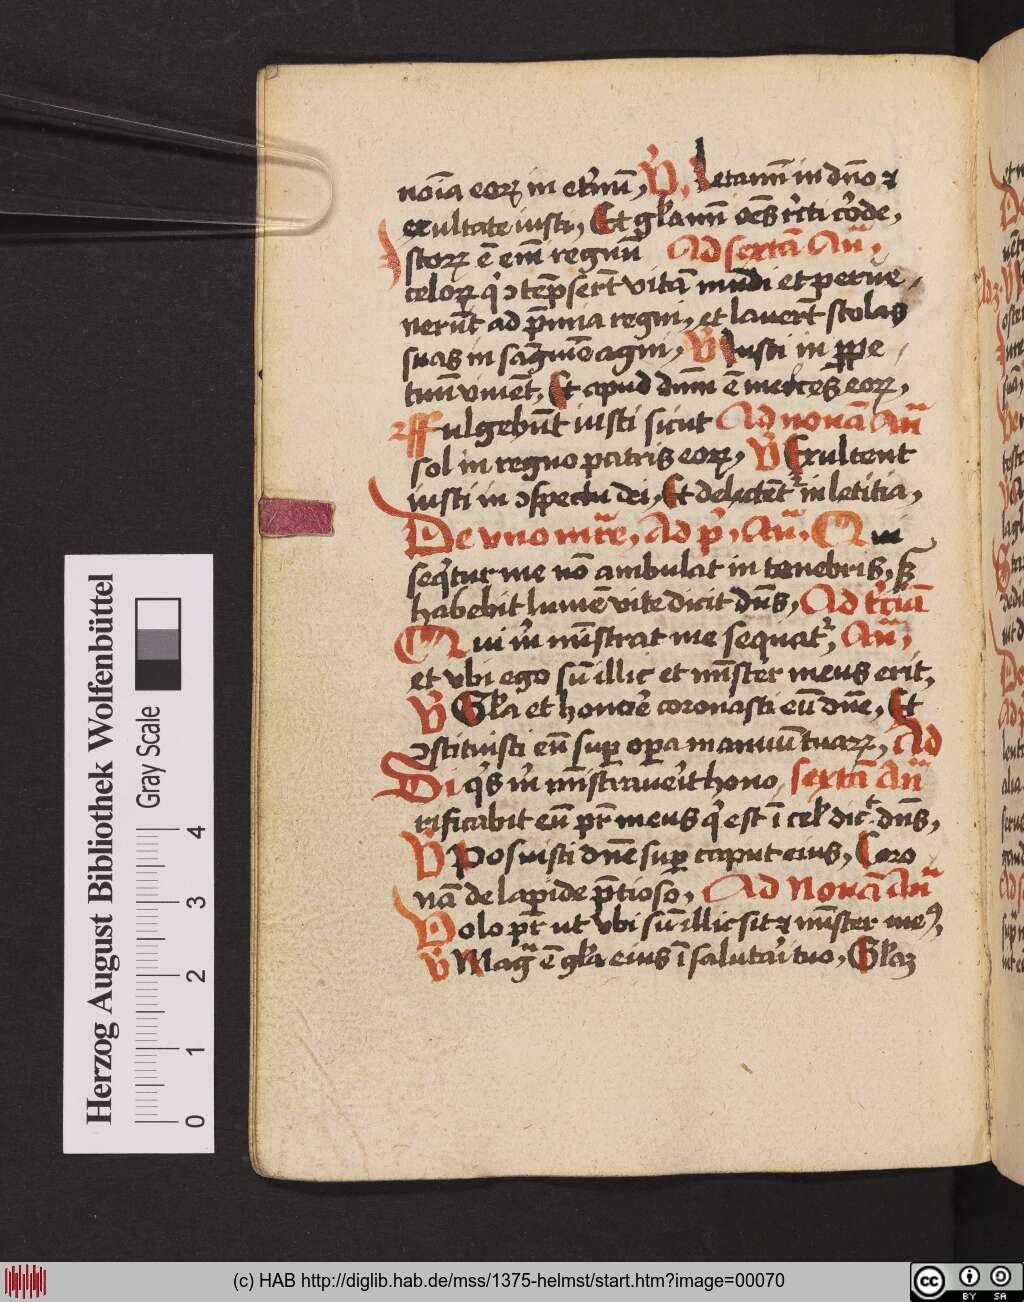 noīa eoꝝ in et͛nū, V͛, Letamī in dn̄o ⁊
exultate iusti, Et gl͛amī oēs r͛cti co͛de,
Istoꝝ ē em̄ regnū Ad sextā An̄,
celoꝝ q͛ ↄtēpser̄t vitā mūdi et perue
nerūt ad p̄mia regni, et lauer̄t stolas
suas in sāguīe agni, V͛ Iusti in ꝑpe
tuū viuēt, Et apud dn̄m ē merces eoꝝ,
Effulgebūt iusti sicut Ad nonā An̄
sol in regno patris eoꝝ, V͛ Exultent
iusti in ↄspectu dei, Et delectēt᷑ in letitia,
De vno mr̄e, Ad p͛, An̄, Qui
seq͛tur me nō ambulat in tenebris, sꝫ
habebit lumē vite dicit dn̄s, Ad t͛ciā
Qui m͛ mīstrat me sequat᷑, An̄,
et vbi ego sū illic et mīster meus erit,
V͛ Gl͛a et hono͛e coronasti eū dn̄e, Et
ↄstituisti eū sup̱ oꝑa manuū tuaꝝ, Ad
Si q͛s m͛ mīstraue͛it hono sextā An̄
rificabit eū pr̄ meus q͛ est ī cel͛ dic͛t dn̄s,
V͛ Posuisti dn̄e suꝑ caput eius, Coro
nā de lapide p̄tioso, Ad Nonā An̄
Volo pr̄ ut vbi sū illic sit ⁊ mīster meꝰ,
V͛ Mag᷑ ē gl͛a eius ī saluta͛i tuo, Gl͛aꝫ
Herzog August Bibliothek Wolfenbüttel
Gray Scale
0 1 2 3 4
(c) HAB http://diglib.hab.de/mss/1375-helmst/start.htm?image=00070
cc BY SA